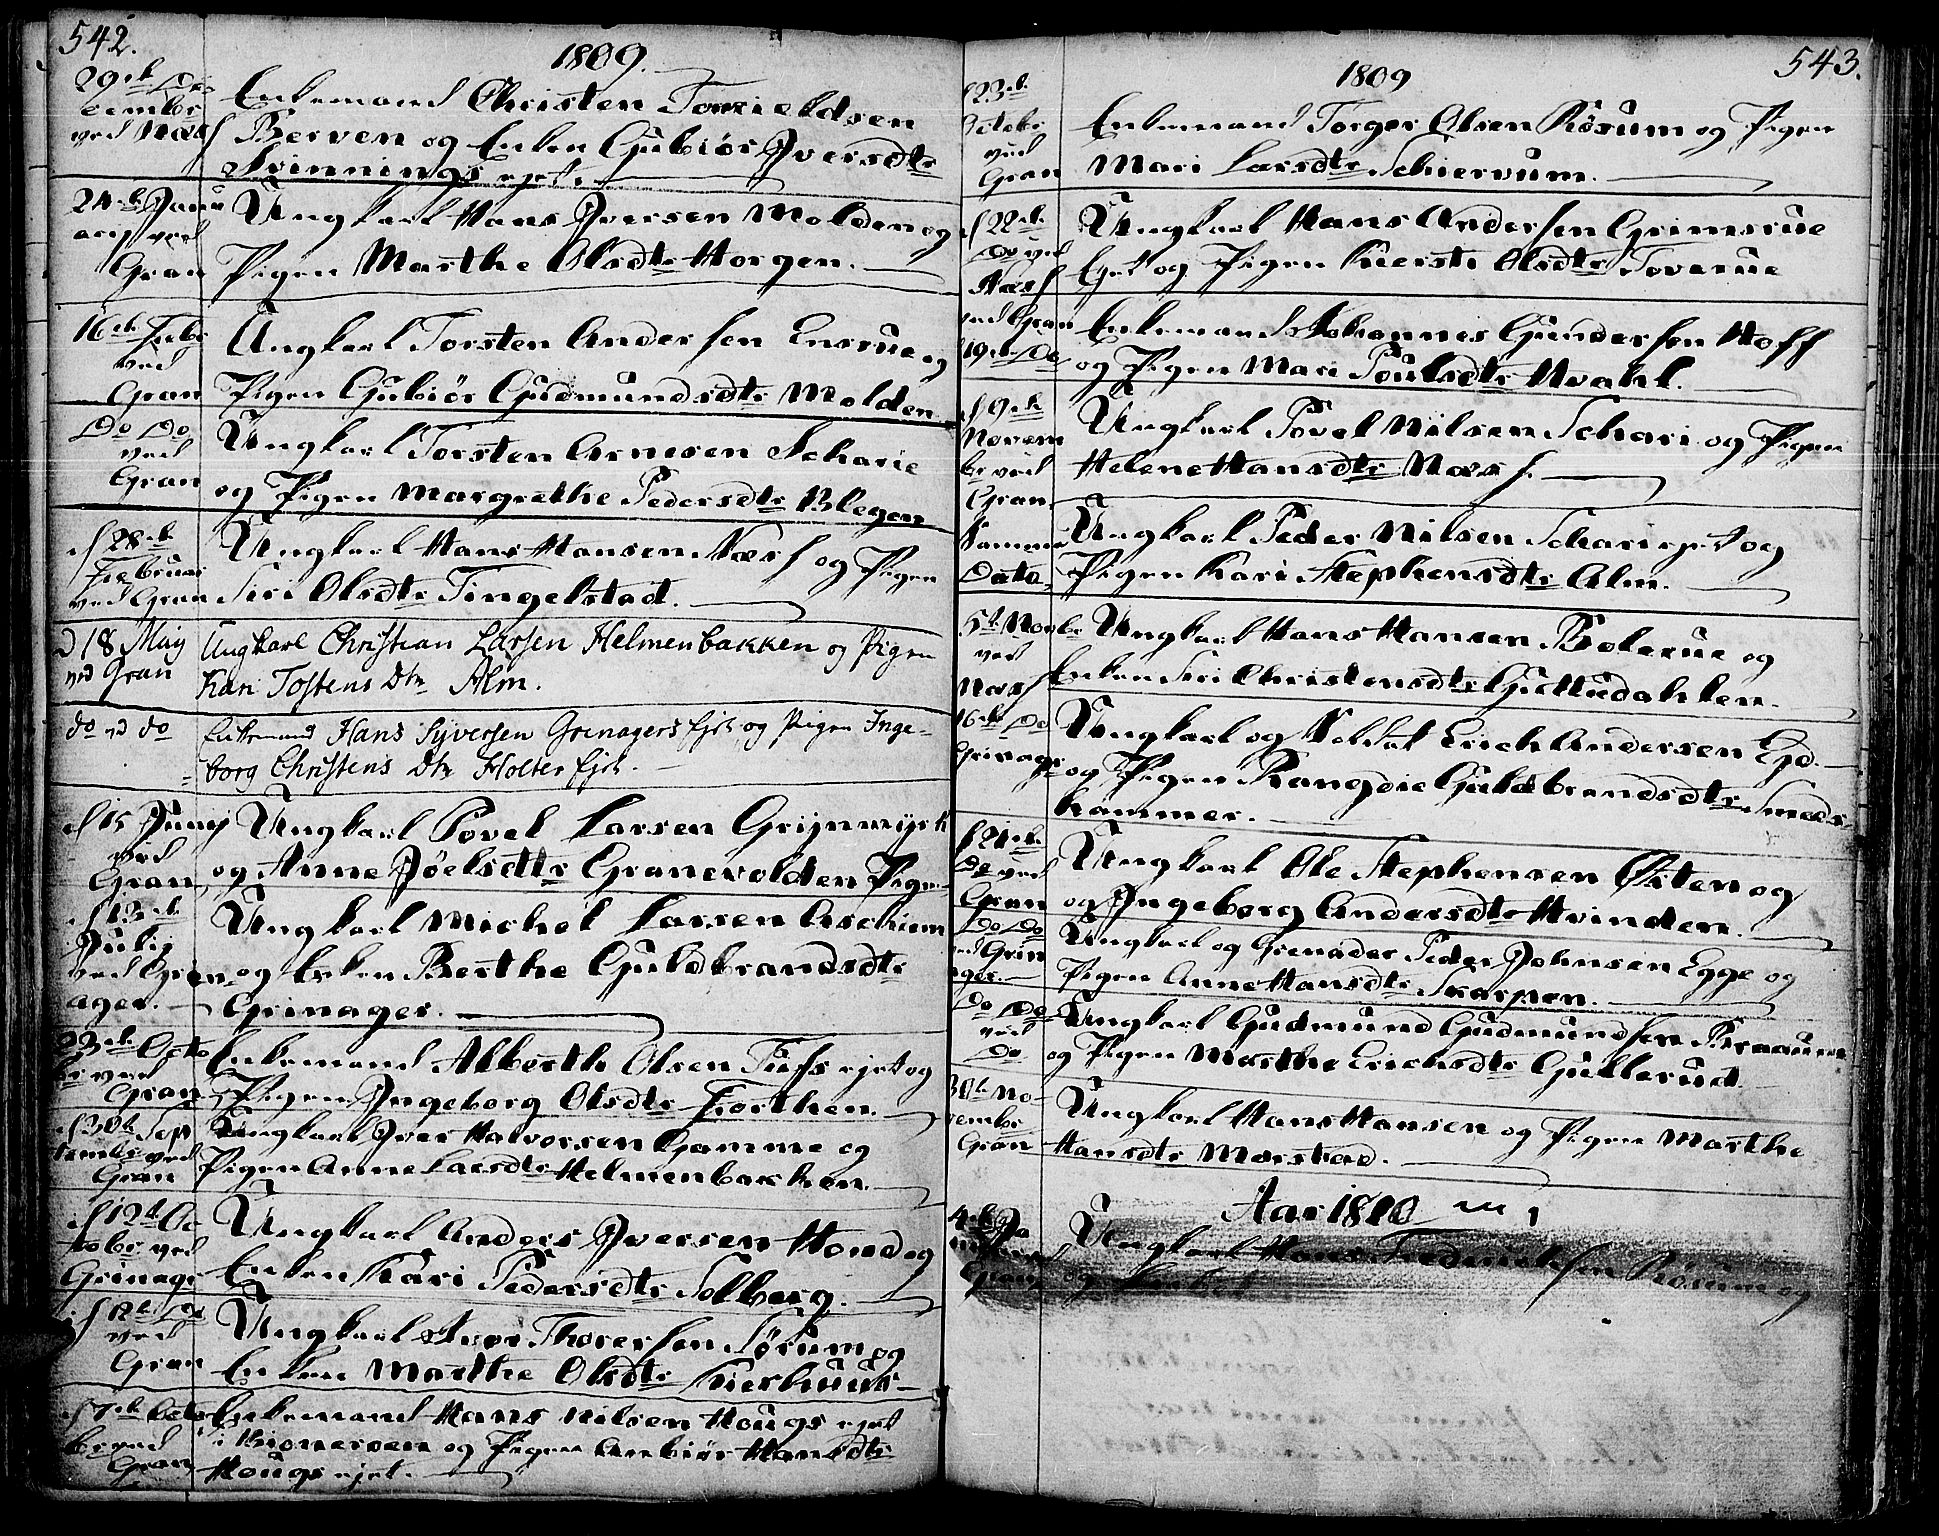 542.
1809.
29de De
cembr
ved Næss
Enkemand Christen Torkieldsen
Berven og Enken Gubiör Iversdtr
Svinnings ejet.
24de Janu
arij ved
Gran
Ungkarl Hans Iversen Molden og
Pigen Marthe Olsdtr Horgen.
16de Febr
ved
Gran
Ungkarl Torsten Andersen Ensrue og
Pigen Gubiör Gudmundsdtr Molden
Do Do
ved
Gran
Ungkarl Torsten Arnesen Scharie
og Pigen Margrethe Pedersdtr Blegen
d 28de
Februar
ved Gran
Ungkarl Hans Hansen Næss og Pigen
Siri Olsdtr Tingelstad.
D 18 May
ved Gran
Ungkarl Christian Larsen Helmenbakken og Pigen
Kari Tostens Dtr Alm.
do ved do
Enkemand Hans Syversen Grenagers Ejet og Pigen Inge-
borg Christens Dtr Holter Ejet.
d 15 Junij
ved
Gran
Ungkarl Povel Larsen Grijnmijrk
og Anne Jöelsdtr Granevolden Pigen
d 13de
Julij
ved Grin
ager.
Ungkarl Michel Larsen Aschiem
og Enken Berthe Guldbrandsdtr
Grinager.
23de Octo
br ved
Gran
Enkemand Alberth Olsen Tufs ejet og
Pigen Ingeborg Olsdtr Forthen.
d 30te Sep
tembr ved
Gran
Ungkarl Iver Halvorsen Gamme og
Pigen Anne Larsdtr Helmenbakken.
d 12te Oc
tobr ved
Grinager
Ungkarl Anders Iversen Hond og
Enken Kari Pedersdtr Solberg.
d 12te Do
ved
Gran
Ungkarl Iver Thorersen Sörum og
Enken Marthe Olsdtr Kierhuus
d 7de Octo
br ved
Gran
Enkemand Hans Nilsen Hougs ejet
i Kionerven og Pigen Anbiör Hansdtr
Hougs ejet.
543.
1809
d 23de
Octobr
ved
Gran
Enkemand Torger Olsen Rösum og Pigen
Mari Larsdtr Schiervum.
d 22de
Do ved
Næss
Ungkarl Hans Andersen Grimsrue
Ejet og Pigen Kiersti Olsdtr Toverue
ved Gran
19de Do
Enkemand Johannes Gundersen Hoff
og Pigen Mari Poulsdtr Hvahl.
d 9de
Novem
br ved
Gran
Ungkarl Povel Nilsen Schari og Pigen
Helene Hansdtr Næss.
Samme
Dato
Ungkarl Peder Nilsen Schari ejet og
Pigen Kari Stephensdtr Alm.
5te Novbr
ved
Næss
Ungkarl Hans Hansen Bolerue og
Enken Siri Christensdtr Gulludahlen.
16de Do
Grinager
Ungkarl og Soldat Erich Andersen Egd.
og Pigen Rangdie Guldbrandsdtr Smeds
hammer.
d 21de
Do ved
Gran
Ungkarl Ole Stephensen Östen og
og Ingeborg Andersdtr Hvinden.
Do Do
ved Grin
ager.
Ungkarl og Grenader Peder Johnsen Egge og
Pigen Anne Hansdtr Skarpen.
Do Do
ved
Do
Ungkarl Gudmund Gudmundsen Braauen
og Pigen Marthe Erichsdtr Gullerud
30te No-
vembr
Gran
Ungkarl Hans Hansen og Pigen Marthe
Hansdtr Morstad.
Aar 1810
4de Ja
Gran
Ungkarl Hans Fredrichsen Rösum og
og